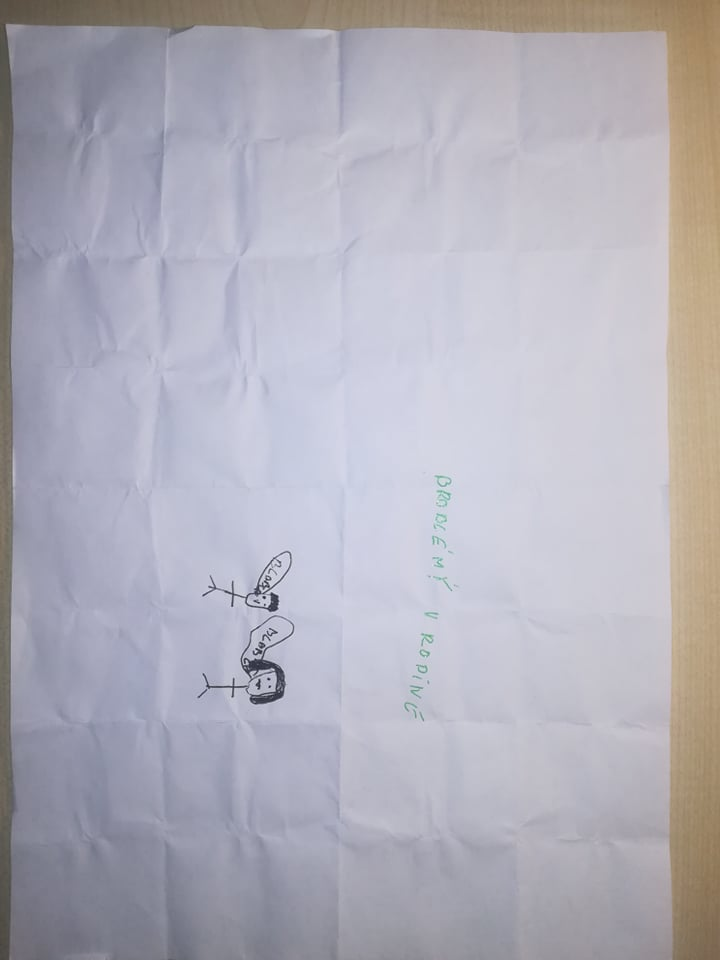 PROBLÉMY V RODINĚ
BLABL
BLABL